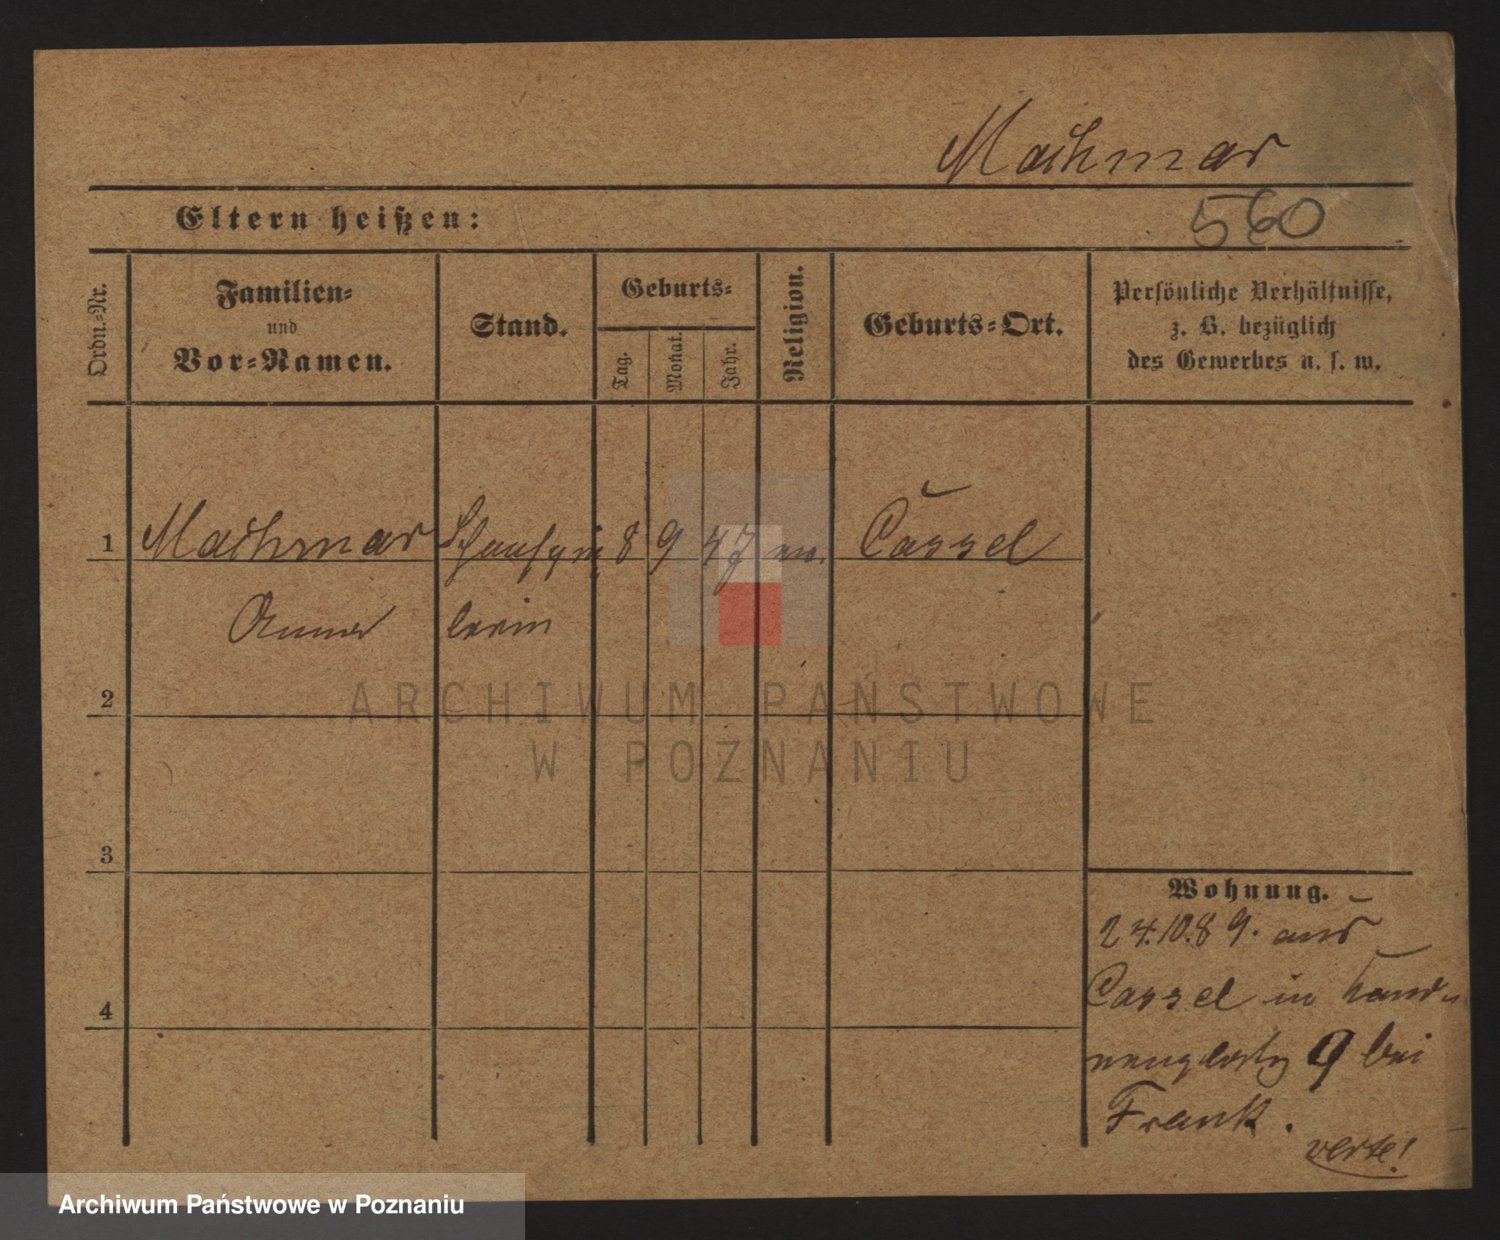 Machmar
Eltern heißen:
560
Ordn.-Nr.
Familien-
und
Vor-Namen.
Stand.
Geburts-
Tag.
Monat.
Jahr.
Religion.
Geburts-Ort.
Persönliche Verhältnisse,
z. B. bezüglich
des Gewerbes u. s. w.
1 Machmar Schauspie 8 9 47 ev. Cassel
Anna lerin
2
3
4
Wohnung.
24.10.89. aus
Cassel in
9 bei
Frank.
verte!
ARCHIWUM PAŃSTWOWE
W POZNANIU
Archiwum Państwowe w Poznaniu